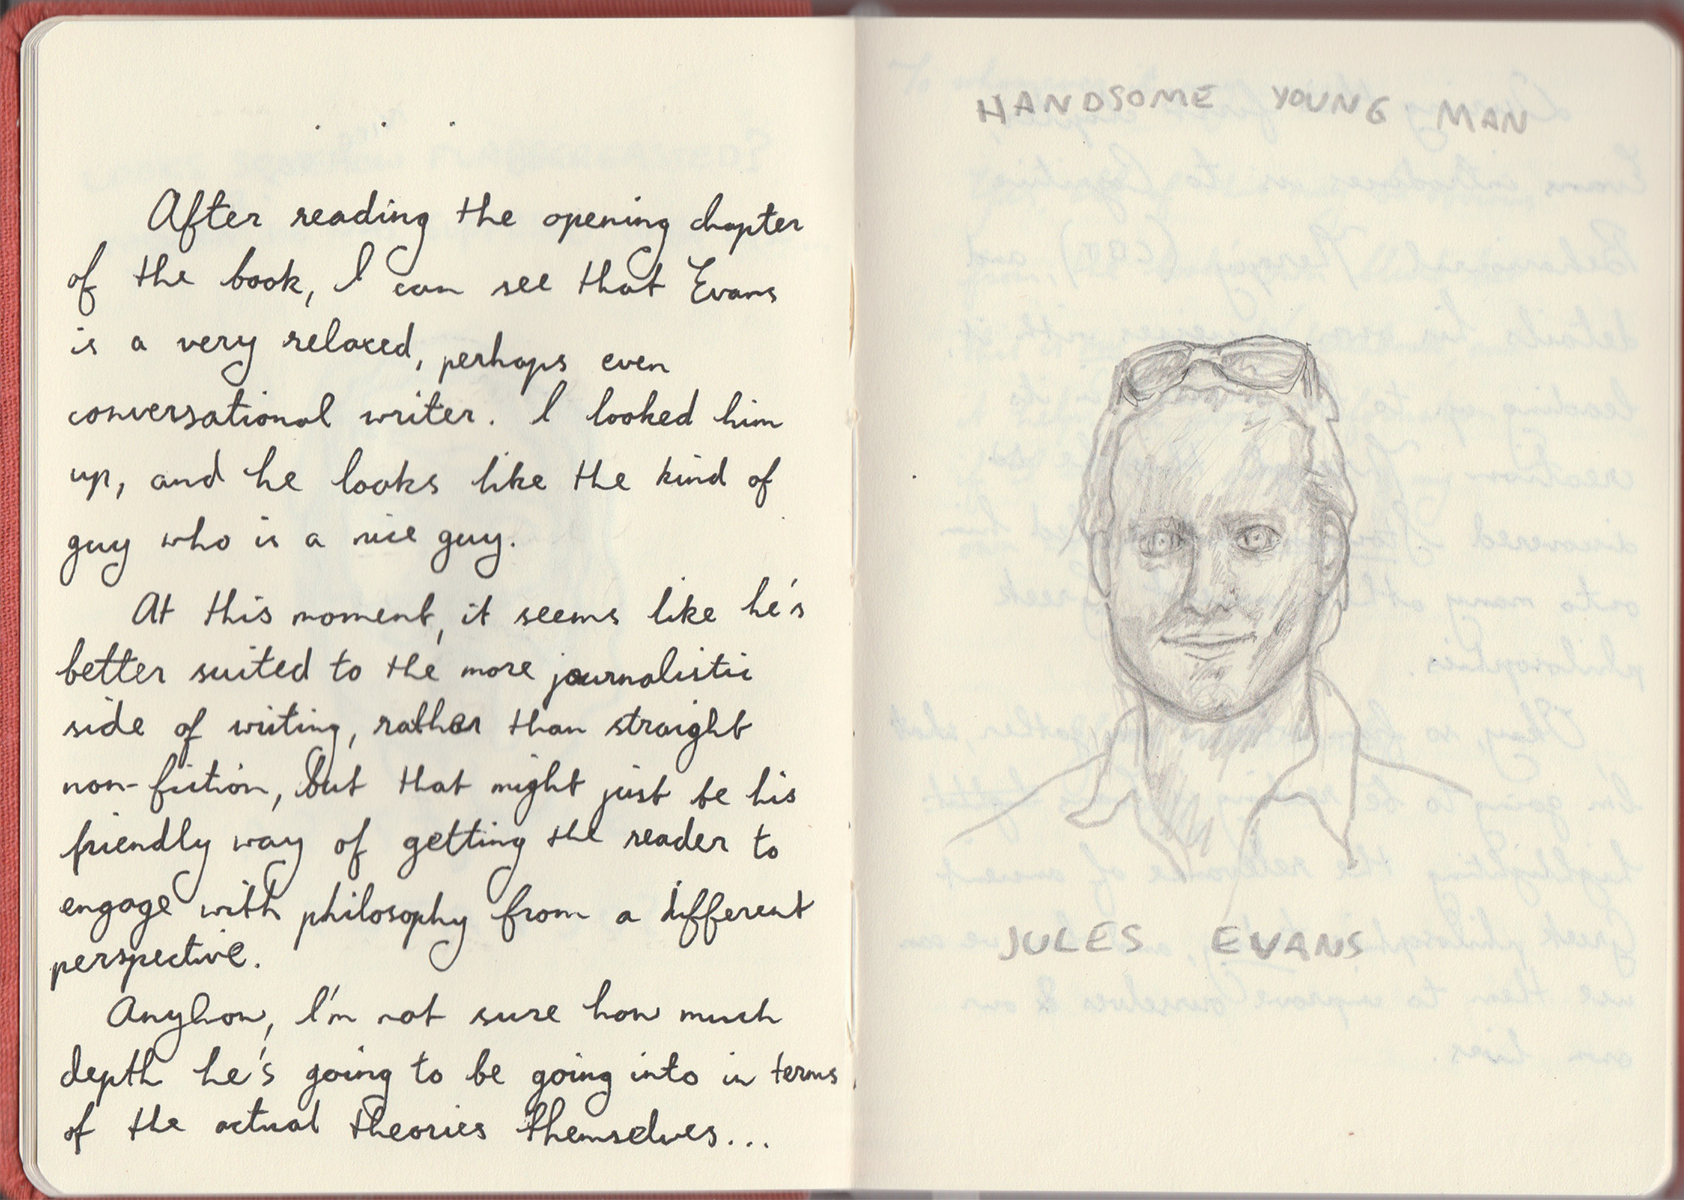 . . .
After reading the opening chapter
of the book, I can see that Evans
is a very relaxed, perhaps even
conversational writer. I looked him
up, and he looks like the kind of
guy who is a nice guy.
At this moment, it seems like he's
better suited to the more journalistic
side of writing, rather than straight
non-fiction, but that might just be his
friendly way of getting the reader to
engage with philosophy from a different
perspective.
Anyhow, I'm not sure how much
depth he's going to be going into in terms
of the actual theories themselves...
HANDSOME YOUNG MAN
JULES EVANS